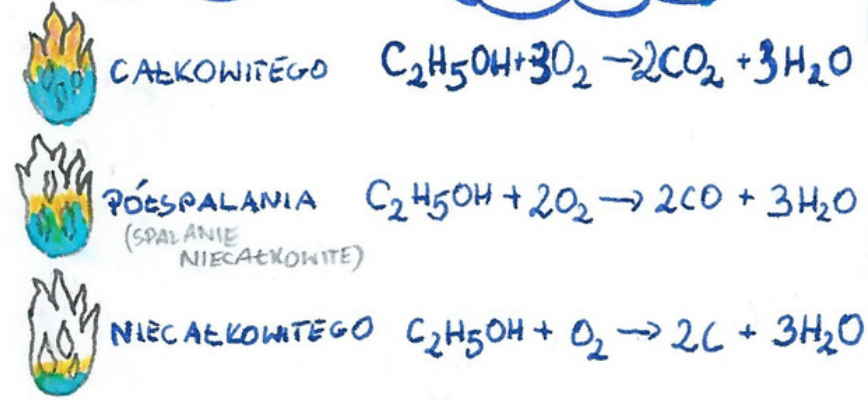 CAŁKOWITEGO C₂H₅OH+3O₂ → 2CO₂ + 3H₂O
PÓŁSPALANIA C₂H₅OH + 2O₂ → 2CO + 3H₂O
(SPALANIE
NIECAŁKOWITE)
NIECAŁKOWITEGO C₂H₅OH + O₂ → 2C + 3H₂O